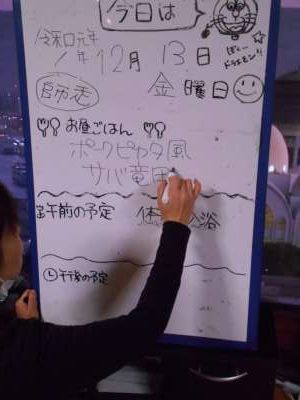 今日は
ぼくドラえもん!!
令和元年
1年12月13日
師走 金曜日
お昼ごはん
ポークピカタ風
サバ竜田
午前の予定 体 浴
午後の予定